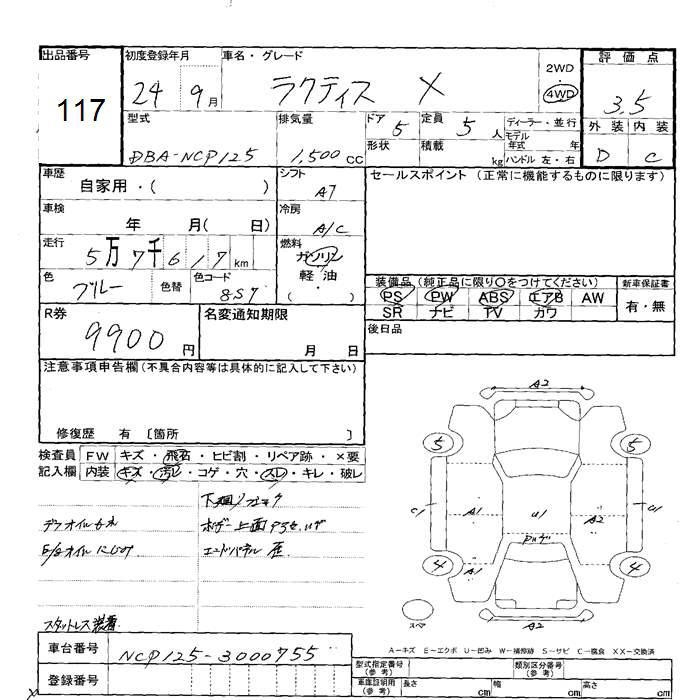 出品番号 初度登録年月 車名・グレード 2WD 評価点
117 24 9月 ラクティス X ・ 4WD 3.5
型式 排気量 ドア 5 定員 5人 ディーラー・並行 外装 内装
DBA-NCP125 1,500cc 形状 積載 kg モデル年式 年 D C
ハンドル 左・右
車歴 シフト セールスポイント (正常に機能するものに限ります)
自家用・( ) AT
車検 冷房
年 月( 日) A/C
走行 燃料
5万7千617km ガソリン
色 色替 色コード 軽油
ブルー 8S7 ( )
装備品 (純正品に限り○をつけてください) 新車保証書
PS PW ABS エアB AW 有・無
SR ナビ TV カワ
R券 名変通知期限 後日品
9900円 月 日
注意事項申告欄 (不具合内容等は具体的に記入して下さい)
修復歴 有 〔箇所 〕
検査員 FW キズ・飛石・ヒビ割・リペア跡・×要
記入欄 内装 キズ・汚レ・コゲ・穴・スレ・キレ・破レ
デフオイルもれ ボデー上面
E/gオイルにじみ エンドパネル
スタットレス装着
A2
5 5
C1 A1 U1 A2 C1
4 A1 4
A2
スペア
A−キズ E−エクボ U−凹み W−補修跡 S−サビ C−腐食 XX−交換済
車台番号 NCP125-3000755
登録番号
型式指定番号 (参考) 類別区分番号 (参考)
車庫証明用 (参考) 長さ cm 幅 cm 高さ cm